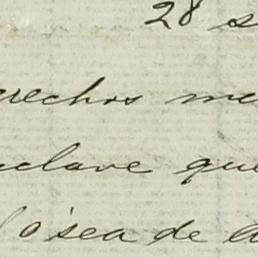 28 s
erechos me
nclave que
o sea de a